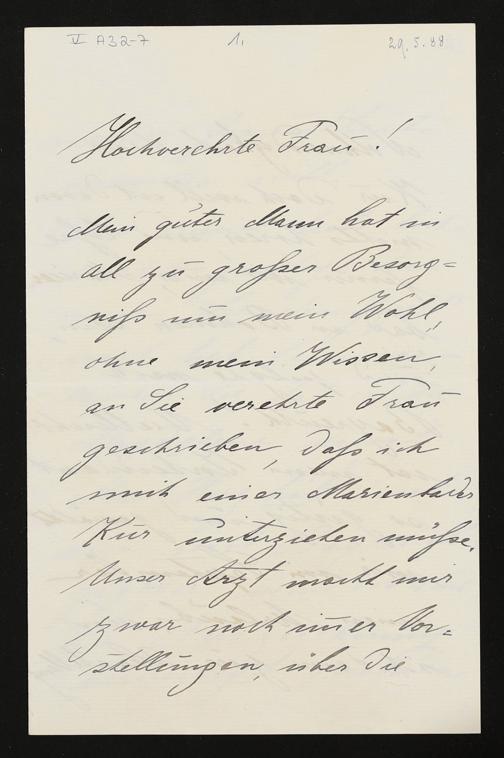 V A32-7 1. 29.5.88
Hochverehrte Frau!
Mein guter Mann hat in
all zu großer Besorg=
niß um mein Wohl,
ohne mein Wissen,
an Sie verehrte Frau
geschrieben, daß ich
mich einer Marienbader
Kur unterziehen müße.
Unser Arzt macht mir
zwar noch im̅er Vor=
stellungen, über die